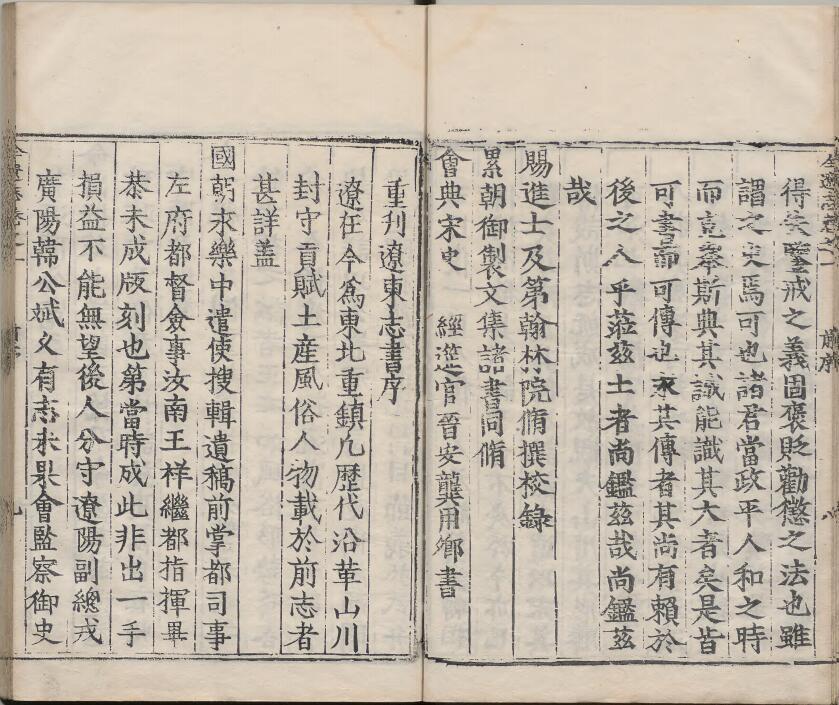 得失鑒戒之義固褒貶勸懲之法也雖
謂之史焉可也諸君當政平人和之時
而克舉斯典其識能識其大者矣是皆
可書而可傳也求其傳者其尚有賴於
後之人乎蒞茲土者尚鑑茲哉尚鑑茲
哉
賜進士及第翰林院脩撰校錄
累朝御製文集諸書同脩
會典宋史 經筵官晉安龔用卿書
重刊遼東志書序
遼在今爲東北重鎮凢歷代沿革山川
封守貢賦土産風俗人物載於前志者
甚詳盖
國朝永樂中遣使搜輯遺稿前掌都司事
左府都督僉事汝南王祥繼都指揮畢
恭未成版刻也第當時成此非出一手
損益不能無望後人分守遼陽副總戎
廣陽韓公斌乂有志未果會監察御史